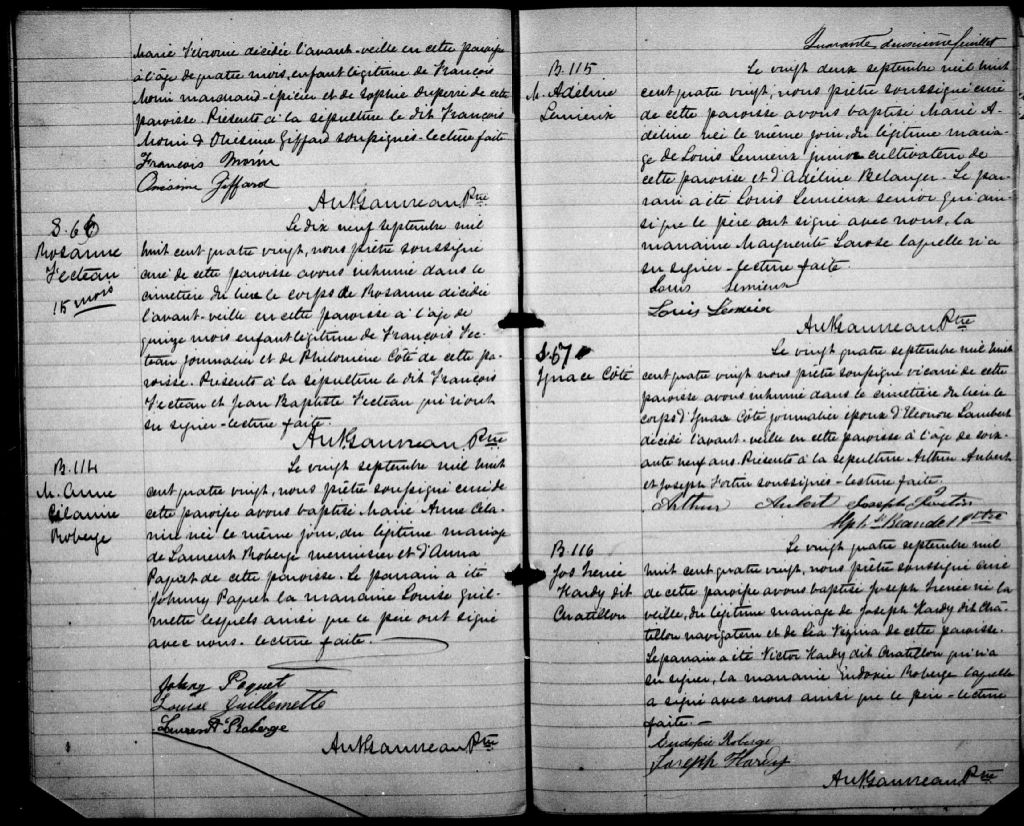 Marie Febronie décédée l'avant-veille en cette paroisse
à l'âge de quatre mois, enfant légitime de François
Morin marchand-épicier et de Sophie Duperré de cette
paroisse. Présents à la sépulture le dit François
Morin & Onésime Giffard soussignés-lecture faite
François Morin
Onésime Giffard
Ant. Gauvreau Ptre
S. 66
Rosanne
Fecteau
15 mois
Le dix neuf septembre mil
huit cent quatre vingt, nous prêtre soussigné
curé de cette paroisse avons inhumé dans le
cimetière du lieu le corps de Rosanne décédée
l'avant-veille en cette paroisse à l'âge de
quinze mois enfant légitime de François Fec-
teau journalier et de Philomène Côté de cette pa-
roisse. Présents à la sépulture le dit François
Fecteau et Jean Baptiste Fecteau qui n'ont
su signer-lecture faite.
Ant. Gauvreau, Ptre
B. 114
M. Anne
Célanire
Roberge
Le vingt septembre mil huit
cent quatre vingt, nous prêtre soussigné curé de
cette paroisse avons baptisé Marie Anne Céla-
nire née le même jour, du légitime mariage
de Laurent Roberge menuisier et d'Anna
Paquet de cette paroisse. Le parrain a été
Johnny Paquet la marraine Louise Guil-
mette lesquels ainsi que le père ont signé
avec nous. lecture faite.
Johny Paquet
Louise Guillemette
Laurent Roberge
Ant. Gauvreau Ptre
Quarante deuxième feuillet
B. 115
M. Adéline
Lemieux
Le vingt deux septembre mil huit
cent quatre vingt, nous prêtre soussigné curé
de cette paroisse avons baptisé Marie A-
déline née le même jour, du légitime maria-
ge de Louis Lemieux junior cultivateur de
cette paroisse et d'Adéline Belanger. Le par-
rain a été Louis Lemieux senior qui ain-
si que le père ont signé avec nous, la
marraine Marguerite Larose laquelle n'a
su signer-lecture faite.
Louis Lemieux
Louis Lemieux
Ant. Gauvreau Ptre
S. 67
Ignace Côté
Le vingt quatre septembre mil huit
cent quatre vingt nous prêtre soussigné vicaire de cette
paroisse avons inhumé dans le cimetière du lieu le
corps d'Ignace Côté journalier époux d'Eleonore Lambert
décédé l'avant-veille en cette paroisse à l'âge de soix-
ante neuf ans. Présents à la sépulture Arthur Aubert
et Joseph Fortin soussignés-lecture faite.
Arthur Aubert Joseph Fortin
B. 116
Jos Irenée
Hardy dit
Chatillon
Le vingt quatre septembre mil
huit cent quatre vingt, nous prêtre soussigné curé
de cette paroisse avons baptisé Joseph Irenée né la
veille, du légitime mariage de Joseph Hardy dit Châ-
tillon navigateur et de Léa Vézina de cette paroisse.
Le parrain a été Victor Hardy dit Chatillon qui n'a
su signer, la marraine Eudoxie Roberge laquelle
a signé avec nous ainsi que le père-lecture
faite.-
Eudoxie Roberge
Joseph Hardy
Ant. Gauvreau Ptre